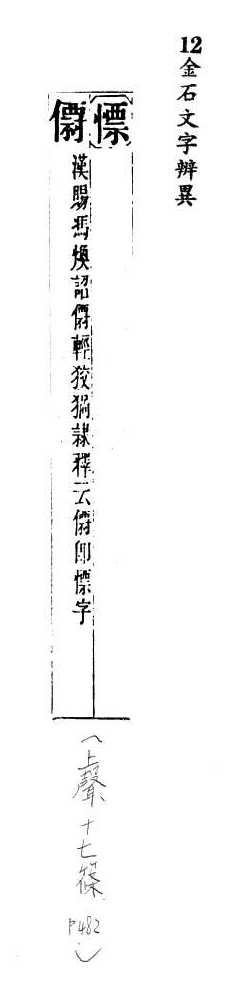 12金石文字辨異
慓
漢賜馮煥詔輕狡猾隸釋云即慓字
（上聲 十七篠 P482）